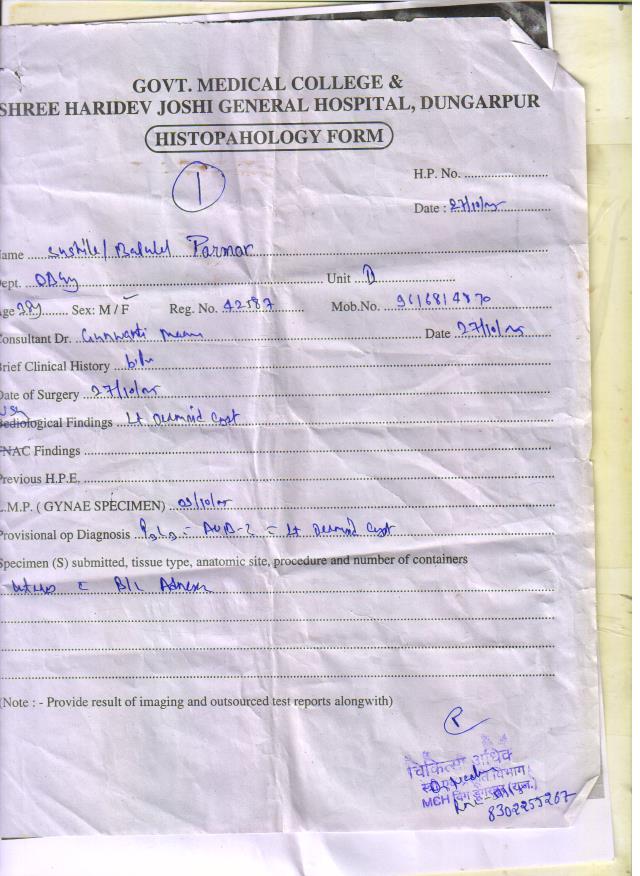 GOVT. MEDICAL COLLEGE &
SHREE HARIDEV JOSHI GENERAL HOSPITAL, DUNGARPUR
HISTOPAHOLOGY FORM
1
H.P. No. ........................
Date : 27/10/
ame ..... Parmar
Dept. OBGy Unit D
Age 38y Sex: M / F Reg. No. 42587 Mob.No.
Consultant Dr. Date 27/10/
Brief Clinical History
Date of Surgery 27/10/
USG
Rediological Findings Lt Dermoid Cyst
FNAC Findings
Previous H.P.E.
L.M.P. ( GYNAE SPECIMEN) 03/10/
Provisional op Diagnosis P2L2 = AUB-L = Lt Dermoid Cyst
Specimen (S) submitted, tissue type, anatomic site, procedure and number of containers
Uterus c B/L Adnexa
(Note : - Provide result of imaging and outsourced test reports alongwith)
चिकित्सा अधि
विभाग
MCH विंग डूंगरपुर (राज.)
8302255267